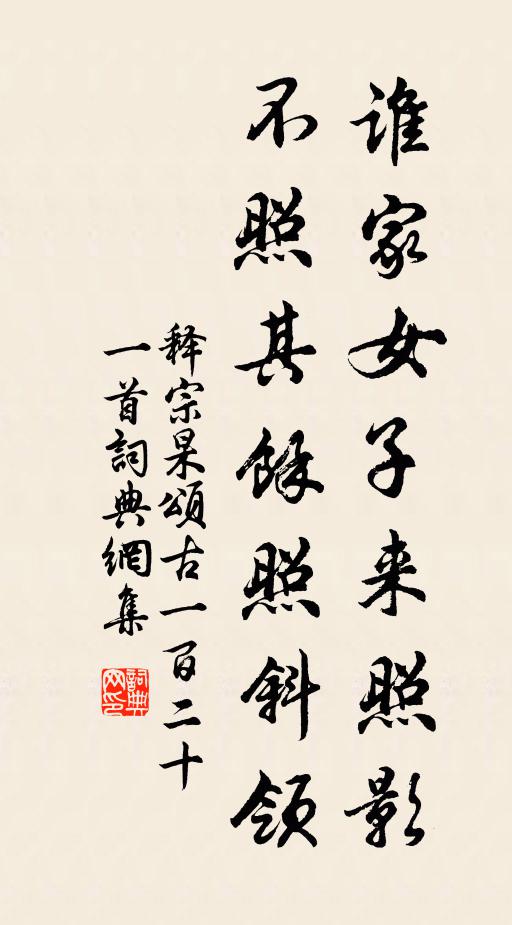 誰家女子来照影
不照其餘照斜領
释宗杲頌古一百二十
一首詞典網集
詞典
网印